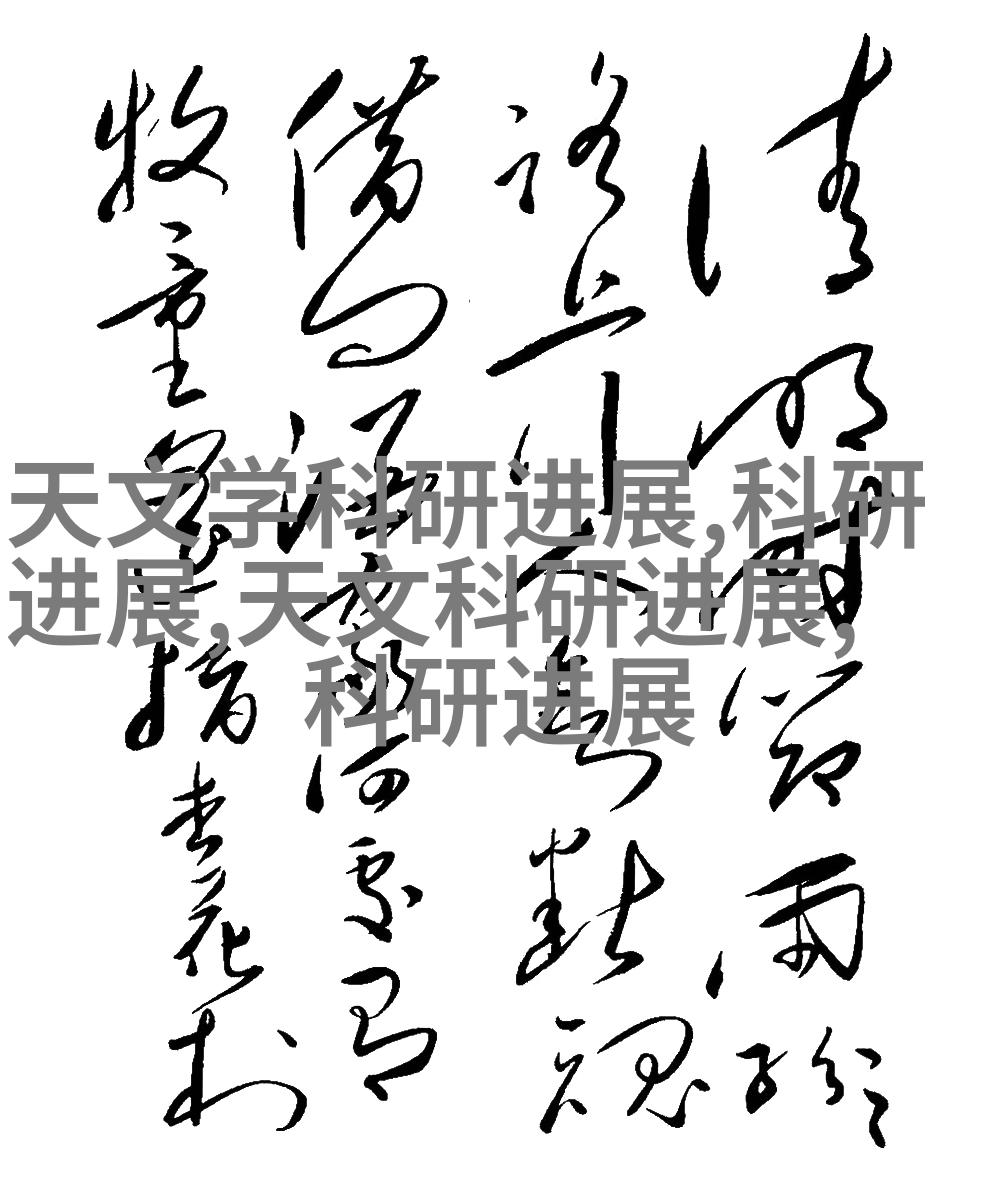 清明時節雨紛紛
路上行人欲斷魂
借問酒家何處有
牧童遙指杏花村
天文学科研进展,科研
进展,天文科研进展,
科研进展